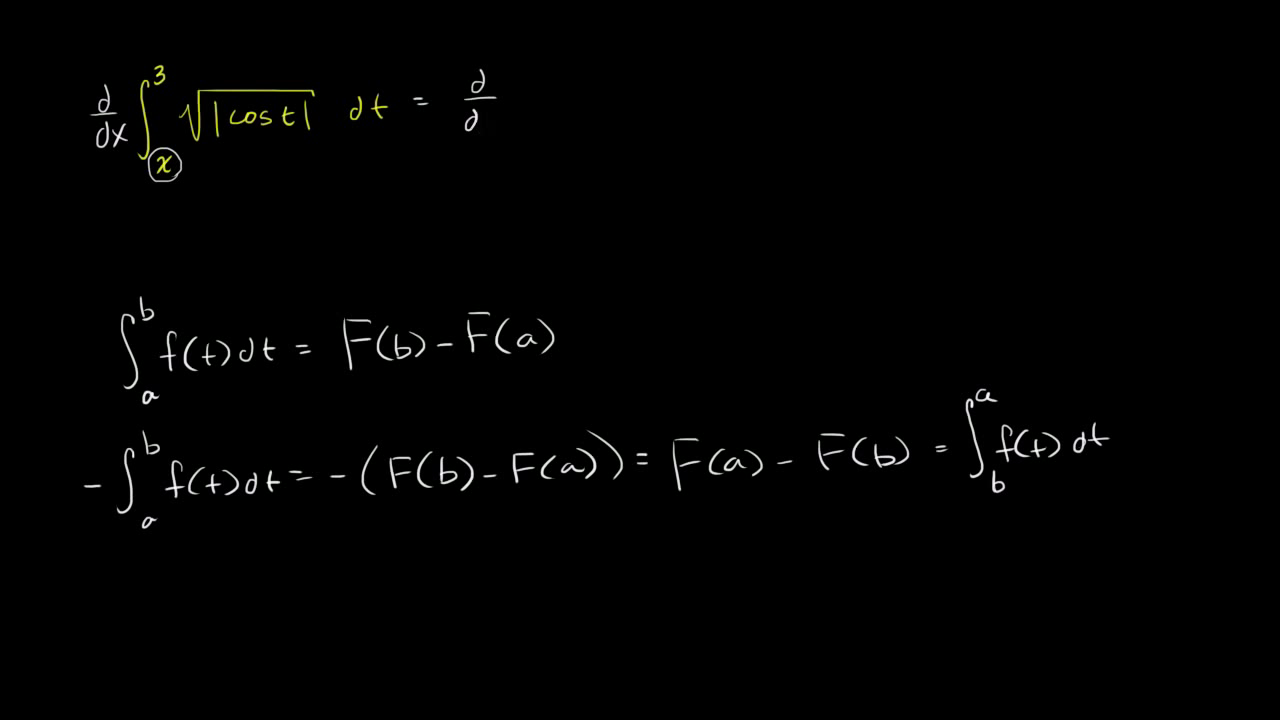 d/dx ∫_x^3 √|cos t| dt = d/d
∫_a^b f(t) dt = F(b) - F(a)
-∫_a^b f(t) dt = -(F(b) - F(a)) = F(a) - F(b) = ∫_b^a f(t) dt